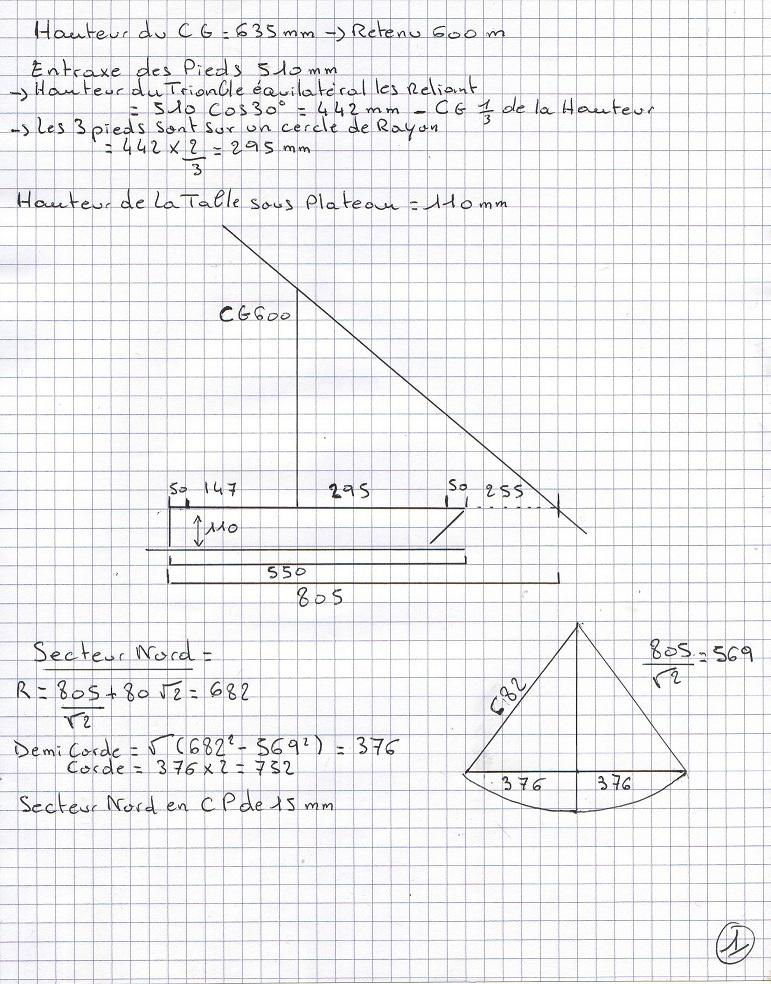 Hauteur du CG = 635 mm -> Retenu 600 m
Entraxe des Pieds 510 mm
-> Hauteur du Triangle équilatéral les Reliant
= 510 Cos 30° = 442 mm - CG 1/3 de la Hauteur
-> Les 3 pieds sont sur un cercle de Rayon
= 442 x 2/3 = 295 mm
Hauteur de La Table sous Plateau = 110 mm
CG 600
50 147 295 50 255
110
550
805
Secteur Nord =
R = 805/√2 + 80 √2 = 682
Demi Corde = √(682² - 569²) = 376
Corde = 376 x 2 = 752
Secteur Nord en CP de 15 mm
682
805/√2 = 569
376 376
1